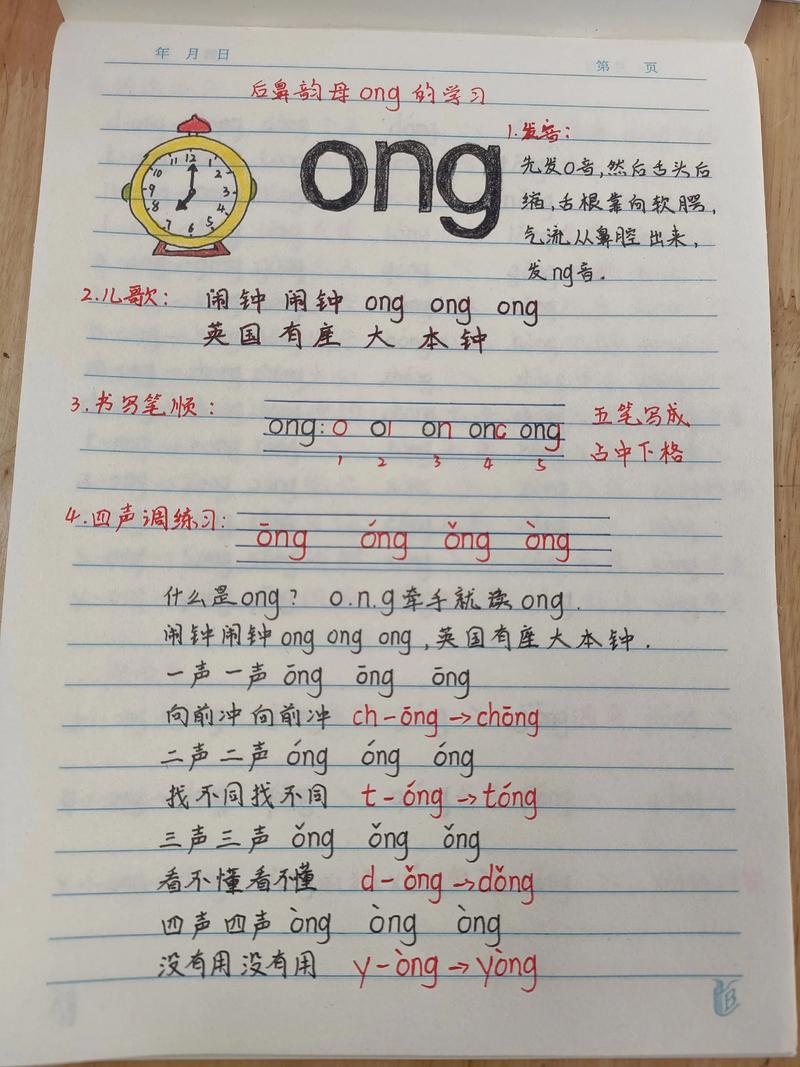 年 月 日
第 页
后鼻韵母ong的学习
12
1
2
3
4
5
6
7
8
9
10
11
ong
1.发音:
先发o音,然后舌头后
缩,舌根靠向软腭,
气流从鼻腔出来,
发ng音.
2.儿歌: 闹钟 闹钟 ong ong ong
英国有座大本钟
3.书写笔顺:
ong: o oı on onc ong
1 2 3 4 5
五笔写成
占中下格
4.四声调练习: ōng óng ǒng òng
什么是ong? o.n.g牵手就读ong.
闹钟闹钟ong ong ong,英国有座大本钟.
一声一声 ōng ōng ōng
向前冲向前冲 ch-ōng→chōng
二声二声 óng óng óng
找不同找不同 t-óng→tóng
三声三声 ǒng ǒng ǒng
看不懂看不懂 d-ǒng→dǒng
四声四声 òng òng òng
没有用没有用 y-òng→yòng